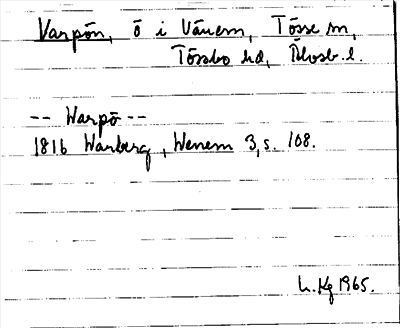 Varpön, ö i Vänern, Tösse sn,
Tössbo hd, Älvsb. l.
-- Warpö --
1816 Warberg, Wenern 3, s. 108.
L. Kg 1965.